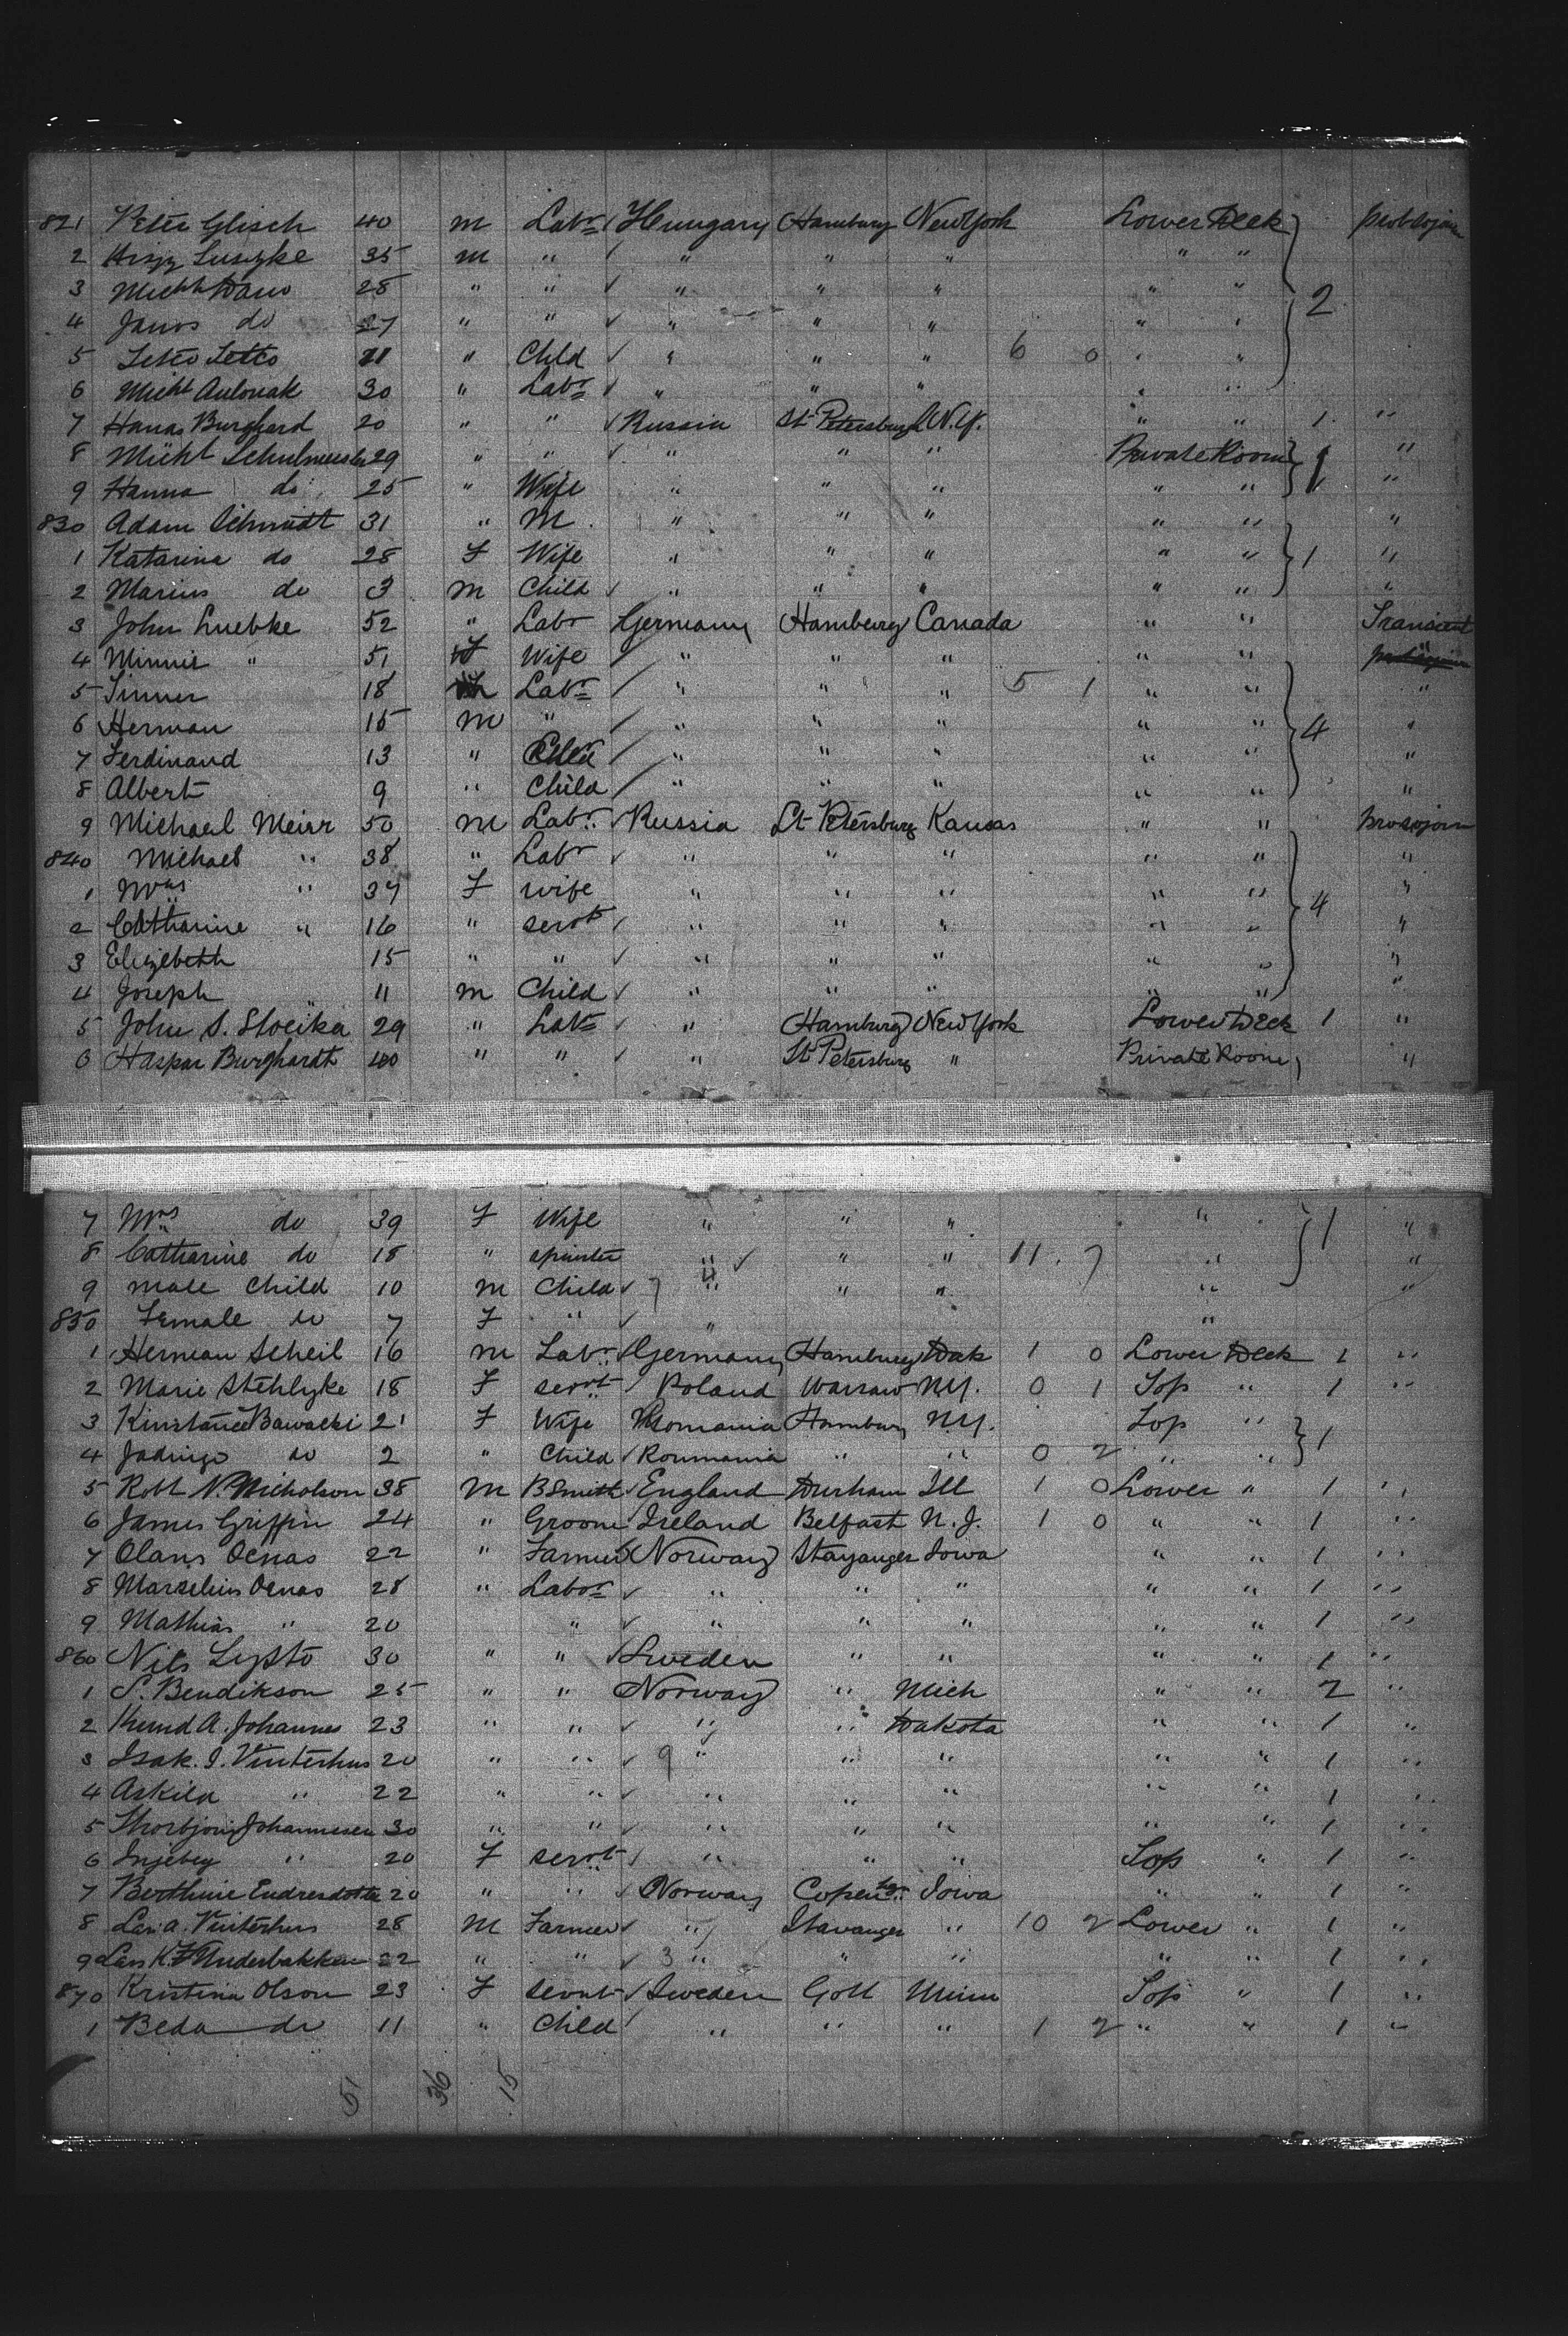 821 Peter Glisch 40 m Labr Hungary Hamburg New York Lower Deck
2 Lusizke 35 m " " " " " "
3 Michl 28 " " " " " " "
4 Janos do 27 " " " " " " "
5 21 " Child " " " 6 0 " " 2
6 Michl 30 " Labr " " " " "
7 Burghard 20 " " Russia St Petersburg N.Y. " " 1 "
8 Michl Schulmeister 29 " " " " " Private Room 1 "
9 Hanna do 25 " Wife " " " " " "
830 Adam Schmidt 31 " m " " " " " "
1 Katarina do 28 F Wife " " " " " 1 "
2 Marius do 3 m Child " " " " " "
3 John Luebke 52 " Labr Germany Hamburg Canada " " Transient
4 Minnie " 51 F Wife " " " " "
5 18 Labr " " " 5 1 " " "
6 Herman 15 m " " " " " " 4 "
7 Ferdinand 13 " Child " " " " " "
8 Albert 9 " Child " " " " " "
9 Michael Meier 50 m Labr Russia St Petersburg Kansas " "
840 Michael " 38 " Labr " " " " " "
1 Mrs " 37 F wife " " " " " "
2 Catharine " 16 " servt " " " " " 4 "
3 Elizebeth 15 " " " " " " " "
4 Joseph " 11 m Child " " " " " "
5 John S. Stoeika 29 " Labr " Hamburg New York Lower Deck 1 "
6 Haspar Burghardt 40 " " " St Petersburg " Private Room "
7 Mrs do 39 F Wife " " " " 1 "
8 Catharine do 18 " spinster " " " 11 7 " "
9 male Child 10 m Child 7 " " " " "
850 Female do 7 F " " "
1 Herman Scheil 16 m Labr Germany Hamburg Dak 1 0 Lower Deck 1 "
2 Marie Stehlyke 18 F servt Poland Warsaw N.Y. 0 1 Top " 1 "
3 Bawacki 21 F Wife Romania Hamburg N.Y. Top "
4 do 2 " Child Roumania " " 0 2 " " 1
5 Robt N. Nicholson 38 m B Smith England Durham Ill 1 0 Lower " 1 "
6 James Griffin 24 " Groom Ireland Belfast N.J. 1 0 " " 1 "
7 Olans Oenas 22 " Farmer Norway Stavanger Iowa " " 1 "
8 Marselius Oenas 28 " Labor " " " " " 1 "
9 Mathias " 20 " " " " " " 1 "
860 Nils 30 " " Sweden " " " " 1 "
1 S. Bendikson 25 " " Norway " Mich " " 2 "
2 Knud A. Johannes 23 " " " " Dakota " " 1 "
3 Isak. I. Vinterhus 20 " " 9 " " " " " 1 "
4 Askild " 22 " " " " " " " 1 "
5 Thorbjorn Johannesen 30 " " " " " " " 1 "
6 Injebeg " 20 F servt " " " Top " 1 "
7 Berthine Endresdotter 20 " " Norway Copenhgn Iowa " " 1 "
8 Vinterhus 28 M Farmer " Stavanger " 10 2 Lower " 1 "
9 Lars 22 " " 3 " " " " " 1 "
870 Kristina Olson 23 F Servnt Sweden Gott Minn Top " 1 "
1 Beda do 11 " Child " " " 1 2 " " 1 "
51 36 15